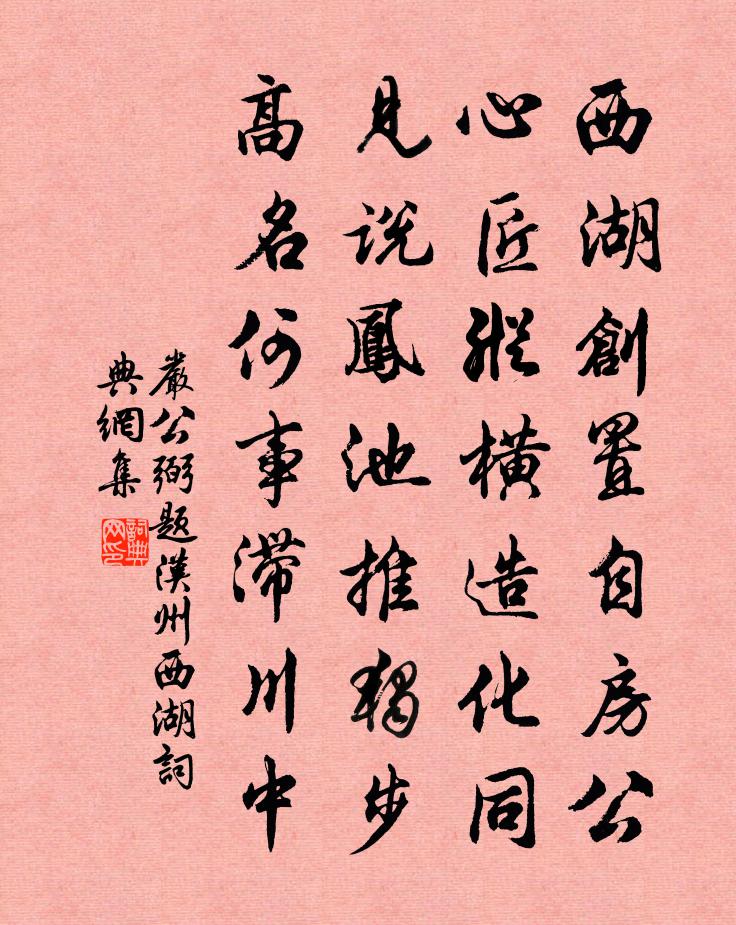 西湖創置自房公
心匠縱橫造化同
見説鳳池推獨步
高名何事滯川中
嚴公弼题漢州西湖詞
典網集
詞典
网印